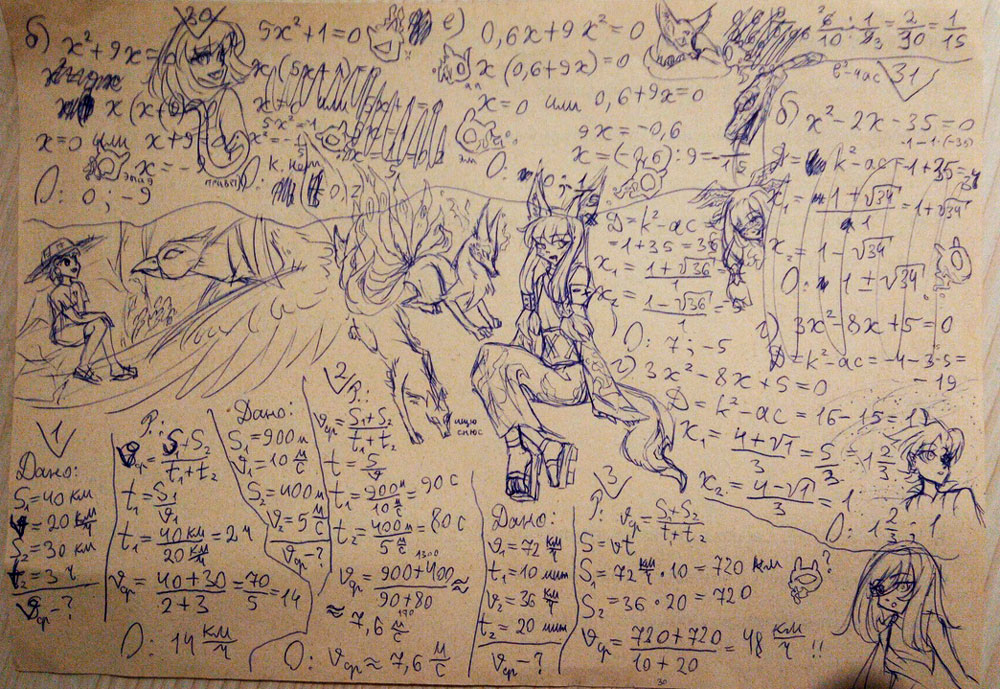 30
б) x²+9x=0
x(x+9)=0
x=0 или x+9=0
x=-9
О: 0; -9
5x²+1=0
5x²=-1
О: к. нет
е) 0,6x+9x²=0
x(0,6+9x)=0
x=0 или 0,6+9x=0
9x=-0,6
x=(-0,6):9=-1/15
О: 0;
=2/30=1/15
31
б) x²-2x-35=0
Д=k²-ac=1+35=
x₁=
=1+√34
x₂=1-√34
О: 1±√34
Д=k²-ac=
=1+35=36
x₁=(1+√36)/1=
x₂=(1-√36)/1=
О: 7; -5
г) 3x²-8x+5=0
Д=k²-ac=-4-3·5=
-19
г) 3x²-8x+5=0
Д=k²-ac=16-15=1
x₁=(4+√1)/3=5/3=1 2/3
x₂=(4-√1)/3=1
О: 1 2/3; 1
1
Дано:
S₁=40 км
=20 км/ч
S₂=30 км
t₂=3 ч
ϑср-?
Р:
ϑср=(S₁+S₂)/(t₁+t₂)
t₁=S₁/ϑ₁
t₁=40 км/20 км/ч=2 ч
ϑср=(40+30)/(2+3)=70/5=14
О: 14 км/ч
2
Дано:
S₁=900 м
ϑ₁=10 м/с
S₂=400 м
ϑ=5 м/с
ϑср-?
Р:
ϑср=(S₁+S₂)/(t₁+t₂)
t=S/ϑ
t₁=900м/10 м/с=90 с
t₂=400м/5 м/с=80 с
1300
ϑср=(900+400)/(90+80)≈
170
≈7,6 м/с
О: ϑср≈7,6 м/с
3
Дано:
ϑ₁=72 км/ч
t₁=10 мин
ϑ₂=36 км/ч
t₂=20 мин
ϑср-?
Р:
ϑср=(S₁+S₂)/(t₁+t₂)
S=ϑt
S₁=72 км/ч·10=720 км ?
S₂=36·20=720
ϑср=(720+720)/(10+20)=48 км/ч !!
30